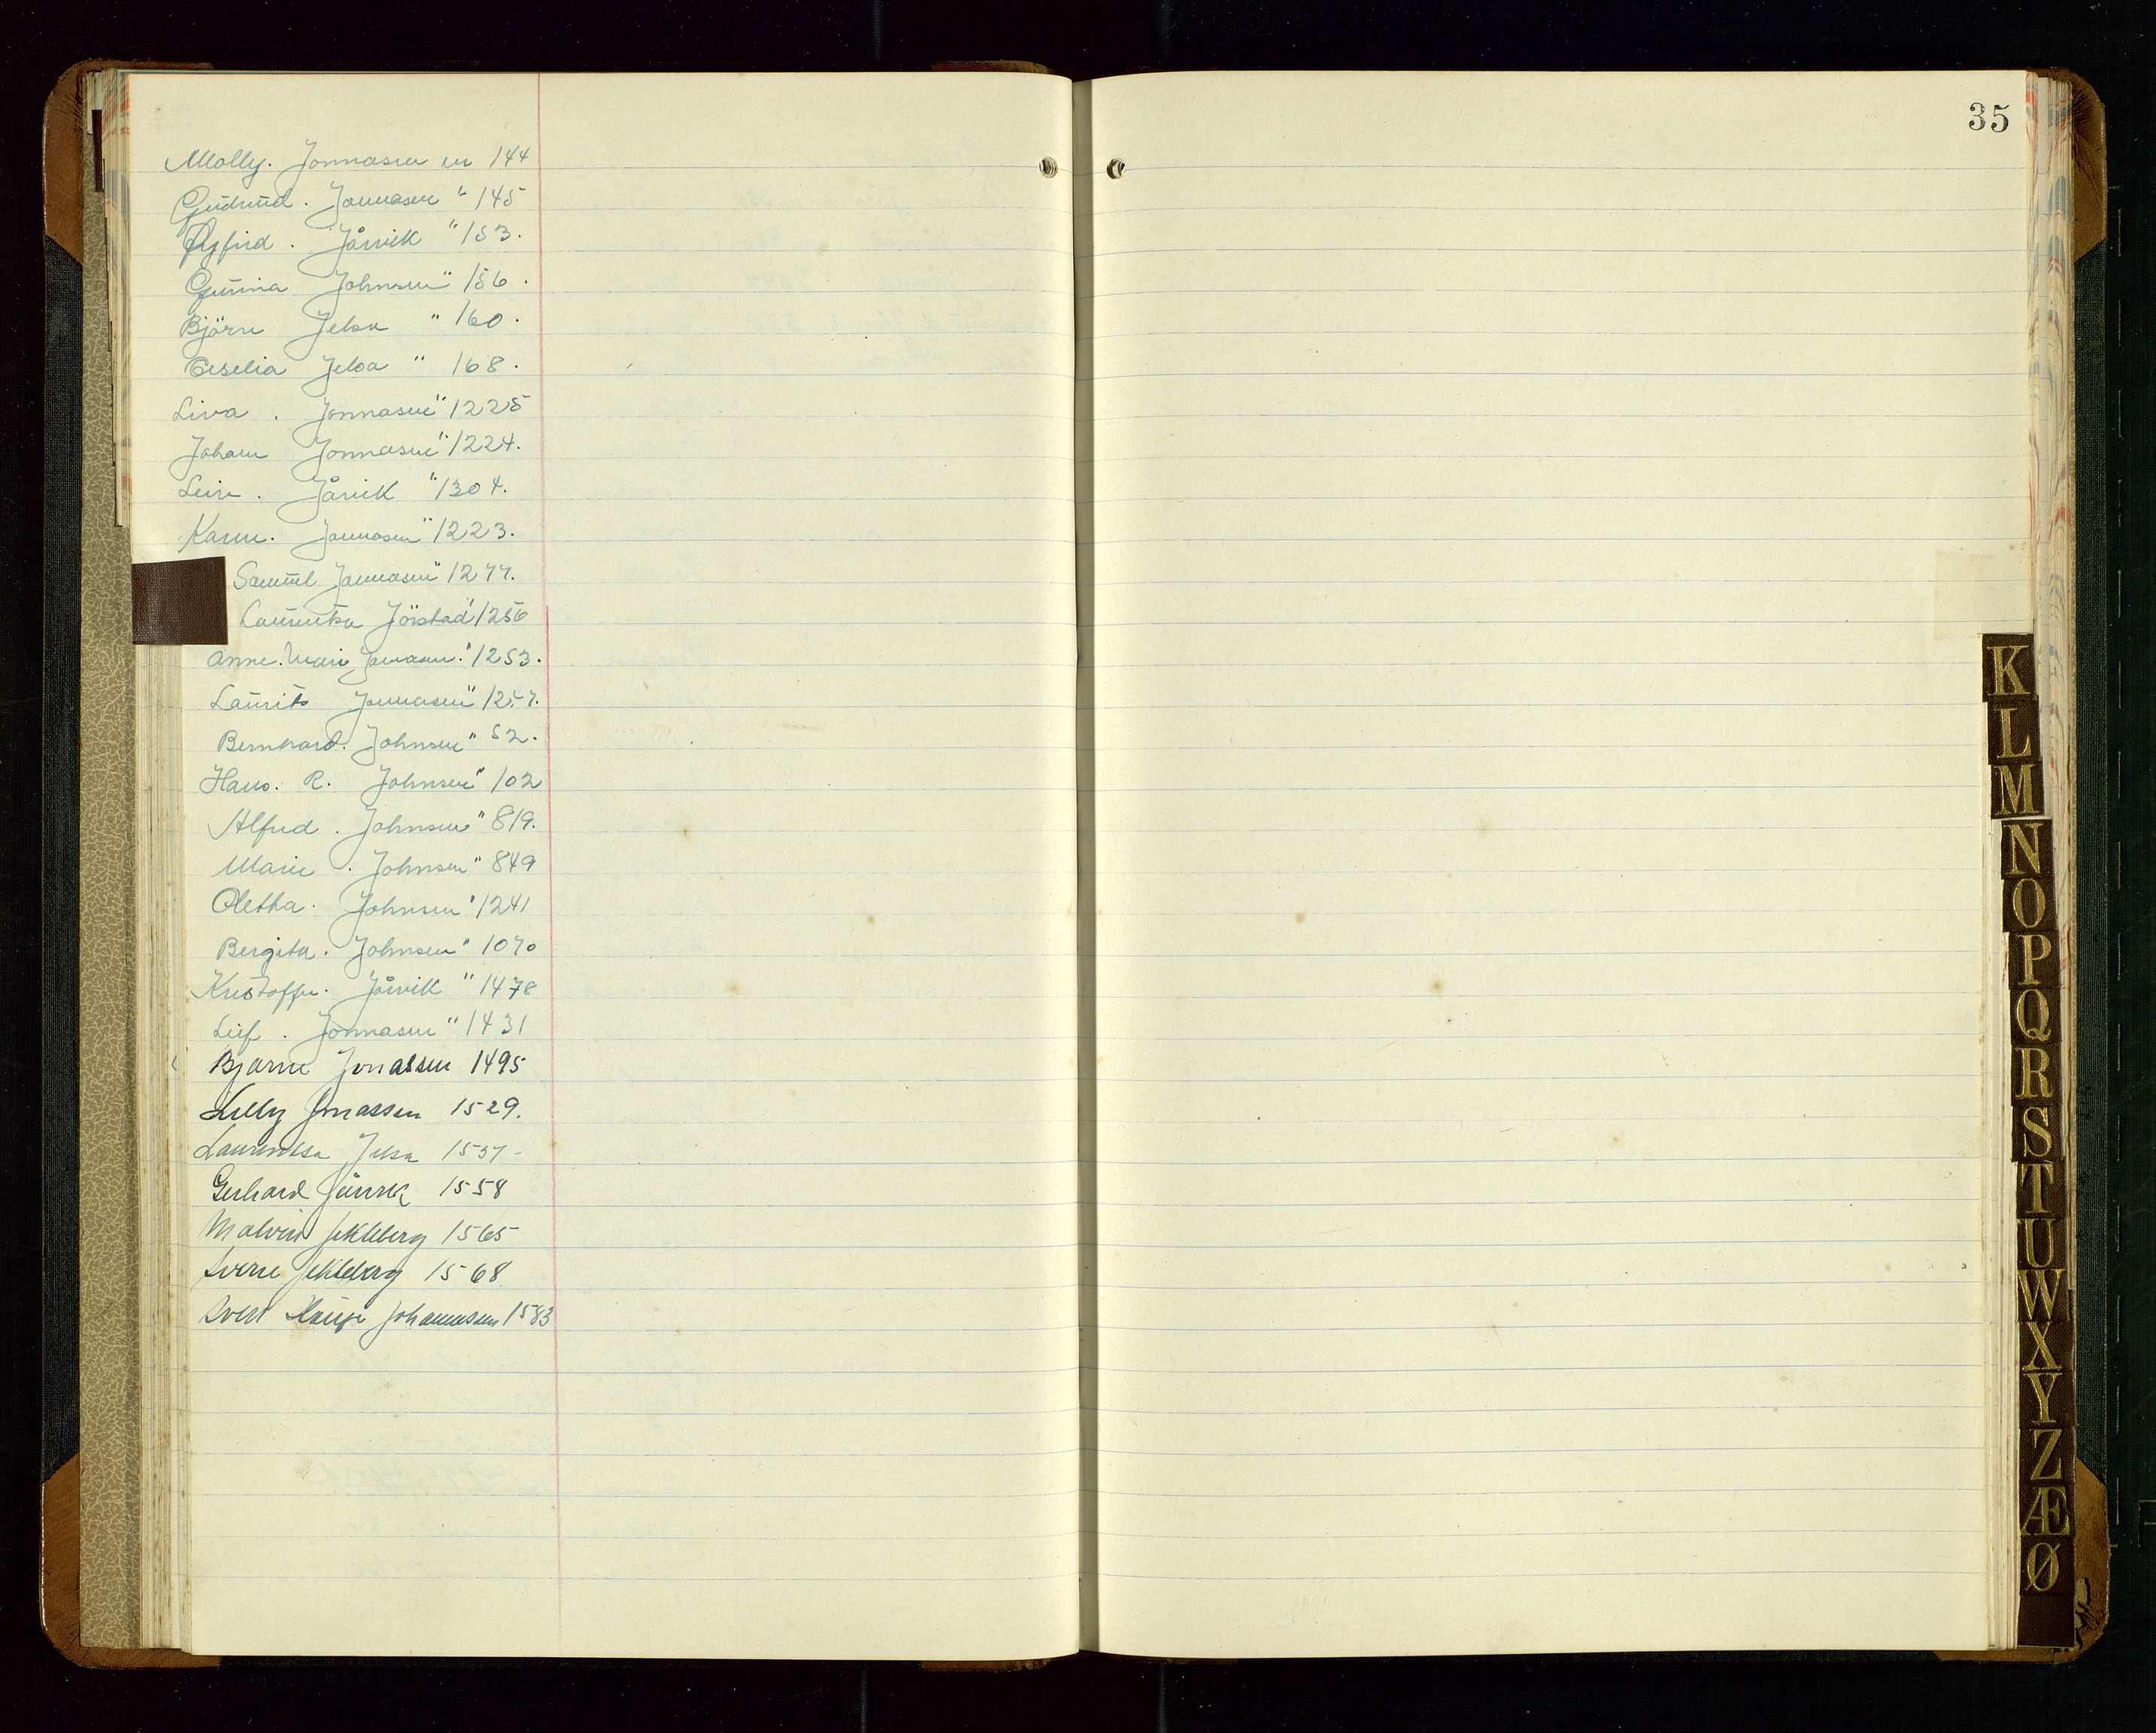 35
Molly. Jonnasen nr 144
Gudrund. Jonnasen " 145
Øyfrid. Jårvik " 153.
Gunna Johnsen " 156.
Björn Jelsa " 160.
Ceselia Jelsa " 168.
Liva. Jonnasen " 1225
Johann Jonnasen " 1224.
Jårvik " 1304.
Karen. Jonnasen " 1223.
Samuel Jonnasen " 1277.
Laurentza Jörstad 1256
Anne. Marie Jonnasen. " 1253.
Laurits Jonnasen "
Bernhard. Johnsen " 52.
Hans. R. Johnsen " 102
Alfred. Johnsen " 819.
Marie. Johnsen " 849
Oletha. Johnsen " 1241
Bergita. Johnsen " 1070
Kristoffer. Jårvik " 1478
Leif. Jonnasen " 1431
Bjarne Jonassen 1495
Lilly Jonassen 1529.
Laurentza Jelsa 1537 -
Gerhard Jårvik 1558
Malvin Jekteberg 1565
Sverre Jekteberg 1568
Sven Hauge Johannessen 1583
K
L
M
N
O
P
Q
R
S
T
U
W
X
Y
Z
Æ
Ø